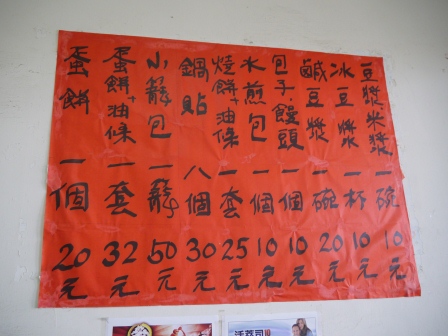 豆漿·米漿 一碗 10元
冰豆漿 一杯 10元
鹹豆漿 一碗 20元
包子·饅頭 一個 10元
水煎包 一個 10元
燒餅+油條 一套 25元
鍋貼 八個 30元
小籠包 一籠 50元
蛋餅+油條 一套 32元
蛋餅 一個 20元